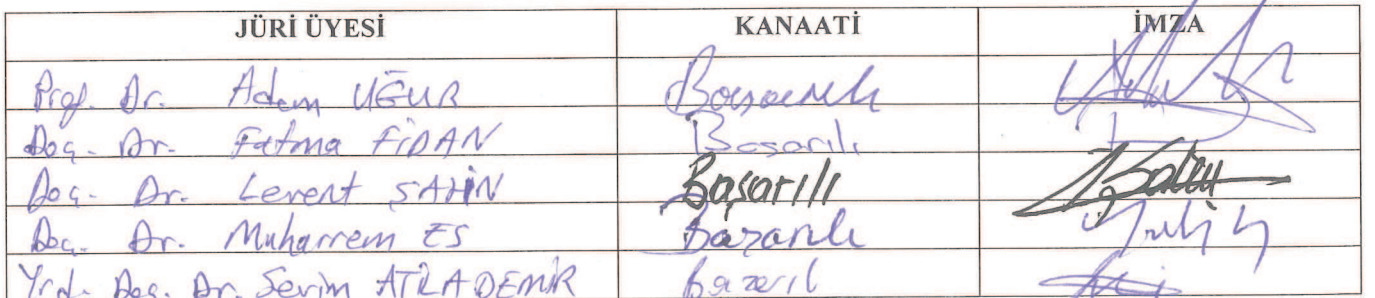 JÜRİ ÜYESİ KANAATİ İMZA
Prof. Dr. Adem UĞUR Başarılı
Doç. Dr. Fatma FİDAN Başarılı
Doç. Dr. Levent ŞAHİN Başarılı
Doç. Dr. Muharrem ES Başarılı
Yrd. Doç. Dr. Sevim ATİLA DEMİR Başarıl